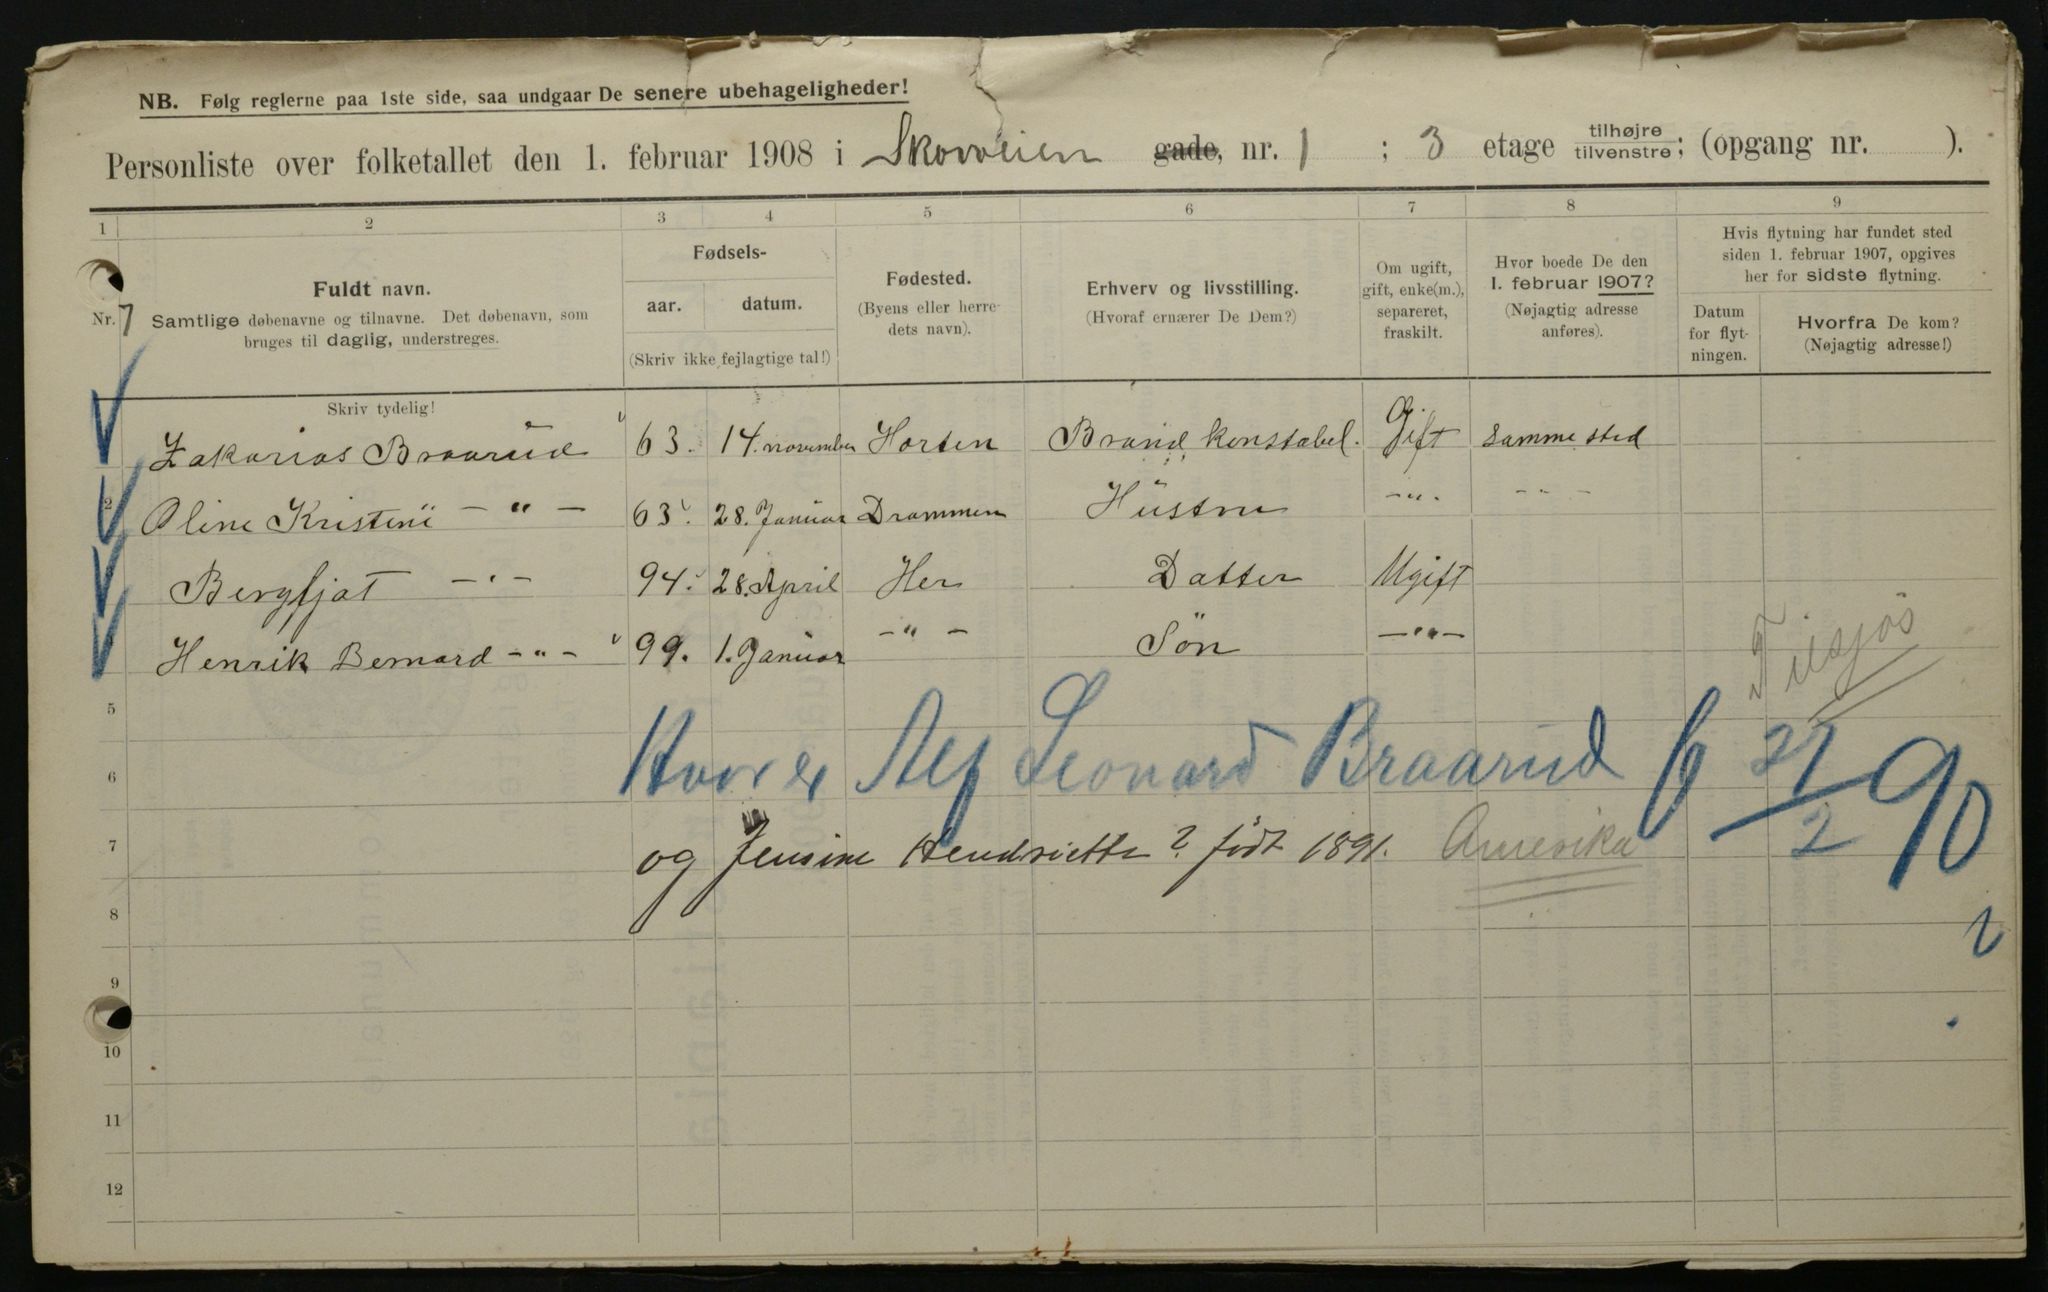 NB. Følg reglerne paa 1ste side, saa undgaar De senere ubehageligheder!
Personliste over folketallet den 1. februar 1908 i Skovveien gade, nr. 1 ; 3 etage tilhøjre tilvenstre; (opgang nr. ).
1 2 3 4 5 6 7 8 9
Nr. 7
Fuldt navn.
Samtlige døbenavne og tilnavne. Det døbenavn, som
bruges til daglig, understreges.
Skriv tydelig!
Fødsels-
aar. datum.
(Skriv ikke fejlagtige tal!)
Fødested.
(Byens eller herre-
dets navn).
Erhverv og livsstilling.
(Hvoraf ernærer De Dem?)
Om ugift,
gift, enke(m.),
separeret,
fraskilt.
Hvor boede De den
1. februar 1907?
(Nøjagtig adresse
anføres).
Hvis flytning har fundet sted
siden 1. februar 1907, opgives
her for sidste flytning.
Datum
for flyt-
ningen.
Hvorfra De kom?
(Nøjagtig adresse!)
Zakarias Braarud 63. 14. november Horten Brand konstabel. Gift samme sted
2 Oline Kristine - " - 63. 28. Januar Drammen Hustru - " - - " -
Bergljot - " - 94. 28. April Her Datter Ugift
Henrik Bernard - " - 99. 1. Januar - " - Søn - " -
Tilsjøs
5
6 Hvor er Alf Leonard Braarud f 27/2 90
7 og Jensine Hendriette? født 1891. Amerika
8
9
10
11
12